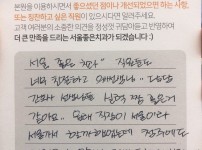 본원을 이용하시면서 좋으셨던 점이나 개선되었으면 하는 사항,
또는 칭찬하고 싶은 직원이 있으시다면 알려주세요.
고객 여러분의 소중한 의견을 정성껏 귀담아듣고 반영하여
더 큰 만족을 드리는 서울좋은치과가 되겠습니다 :)
서울 좋은 치과 직원분들
너무 친절하고
간호사 선생님들 실력 짱 좋은거
같아요. 원래 직장이 서울이라
서울까지